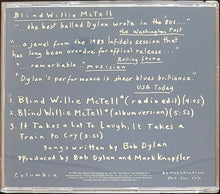 Blind Willie McTell
"...the best ballad Dylan wrote in the 80s..."
the Washington Post
"...a jewel from the 1983 Infidels session that
has long been overdue for official release
Rolling Stone
"...remarkable..." musician
"Dylan's performance is sheer blues brilliance."
USA Today
1. Blind Willie McTell* (radio edit) 4:05
2. Blind Willie McTell* (album version) (5:52)
3. It Takes a Lot To Laugh, It Takes a
Train to Cry (3:21)
songs written by Bob Dylan
*Produced by Bob Dylan and Mark Knopfler
Columbia
Demonstration
Not for sale